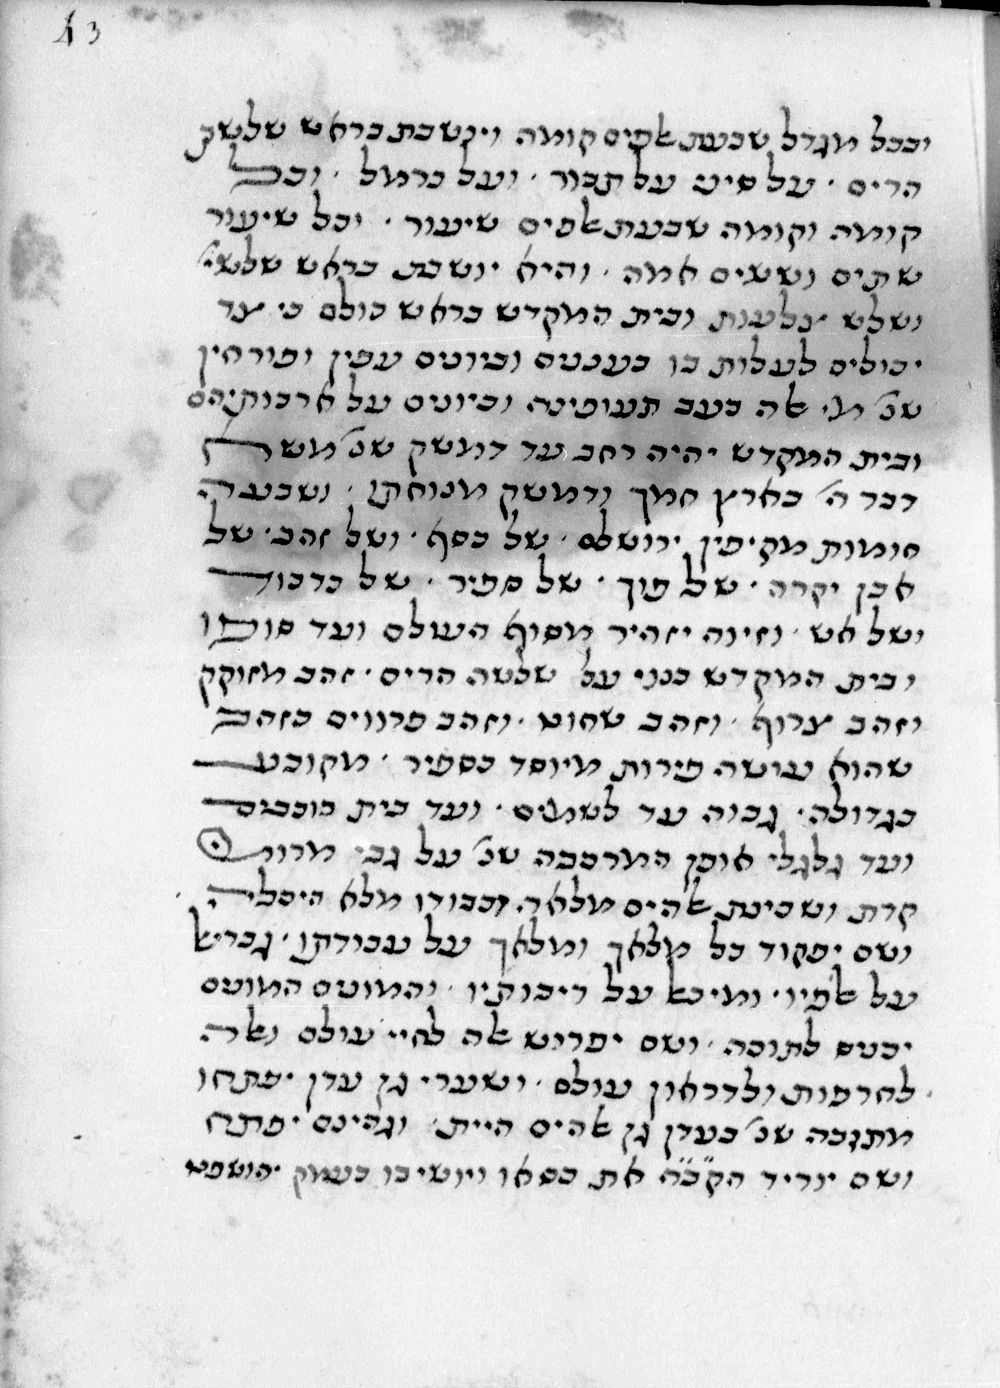 43
ובכל מגדל שבעת אלפים קומה ויושבת בראש שלשת
הרים · על סיני על תבור · ועל כרמל · ובכל
קומה וקומה שבעת אלפים שיעור · וכל שיעור
שתים וששים אמה · והיא יושבת בראש שלשי׳
ושלש צלעות ובית המקדש בראש כולם כי צד
יכולים לעלות בו בעננים וכיונים עפין ופורחין
שנ׳ מי אלה כעב תעופינה וכיונים על ארבותיהם
ובית המקדש יהיה רחב עד דמשק שנ׳ משא
דבר ה׳ בארץ חמך ודמשק מנוחתו · ושבעה
חומות מקיפין ירושלם · של כסף · ושל זהב · של
אבן יקרה · של פוך · של ספיר · של כדכוד
ושל אש · וזיוה יזהיר מסוף העולם ועד סופו
ובית המקדש בנוי על שלשה הרים · זהב מזוקק
וזהב צרוף · וזהב שחוט · וזהב פרוים כזהב
שהוא עושה פירות מיוסד בספיר · מקובע
בגדולה · גבוה עד לשמים · ועד בית כוכבים
ועד גלגלי אופן המרכבה שנ׳ על גבי מרומי
קרת ושכינת אלהים מלאה וכבודו מלא היכליה ·
ושם יפקוד כל מלאך ומלאך על עבודתו · גבריאל
על אלפיו · ומיכאל על ריבותיו · והמונים המונים
יכנס לתוכה · ושם יפריש אלה לחיי עולם ואלה
לחרפות ולדראון עולם · ושערי גן עדן יפתחו
מתוכה שנ׳ בעדן גן אלהים היית · וגהינם יפתח
ושם יוריד הקב״ה את כסאו ויושיבו בעמק יהושפט